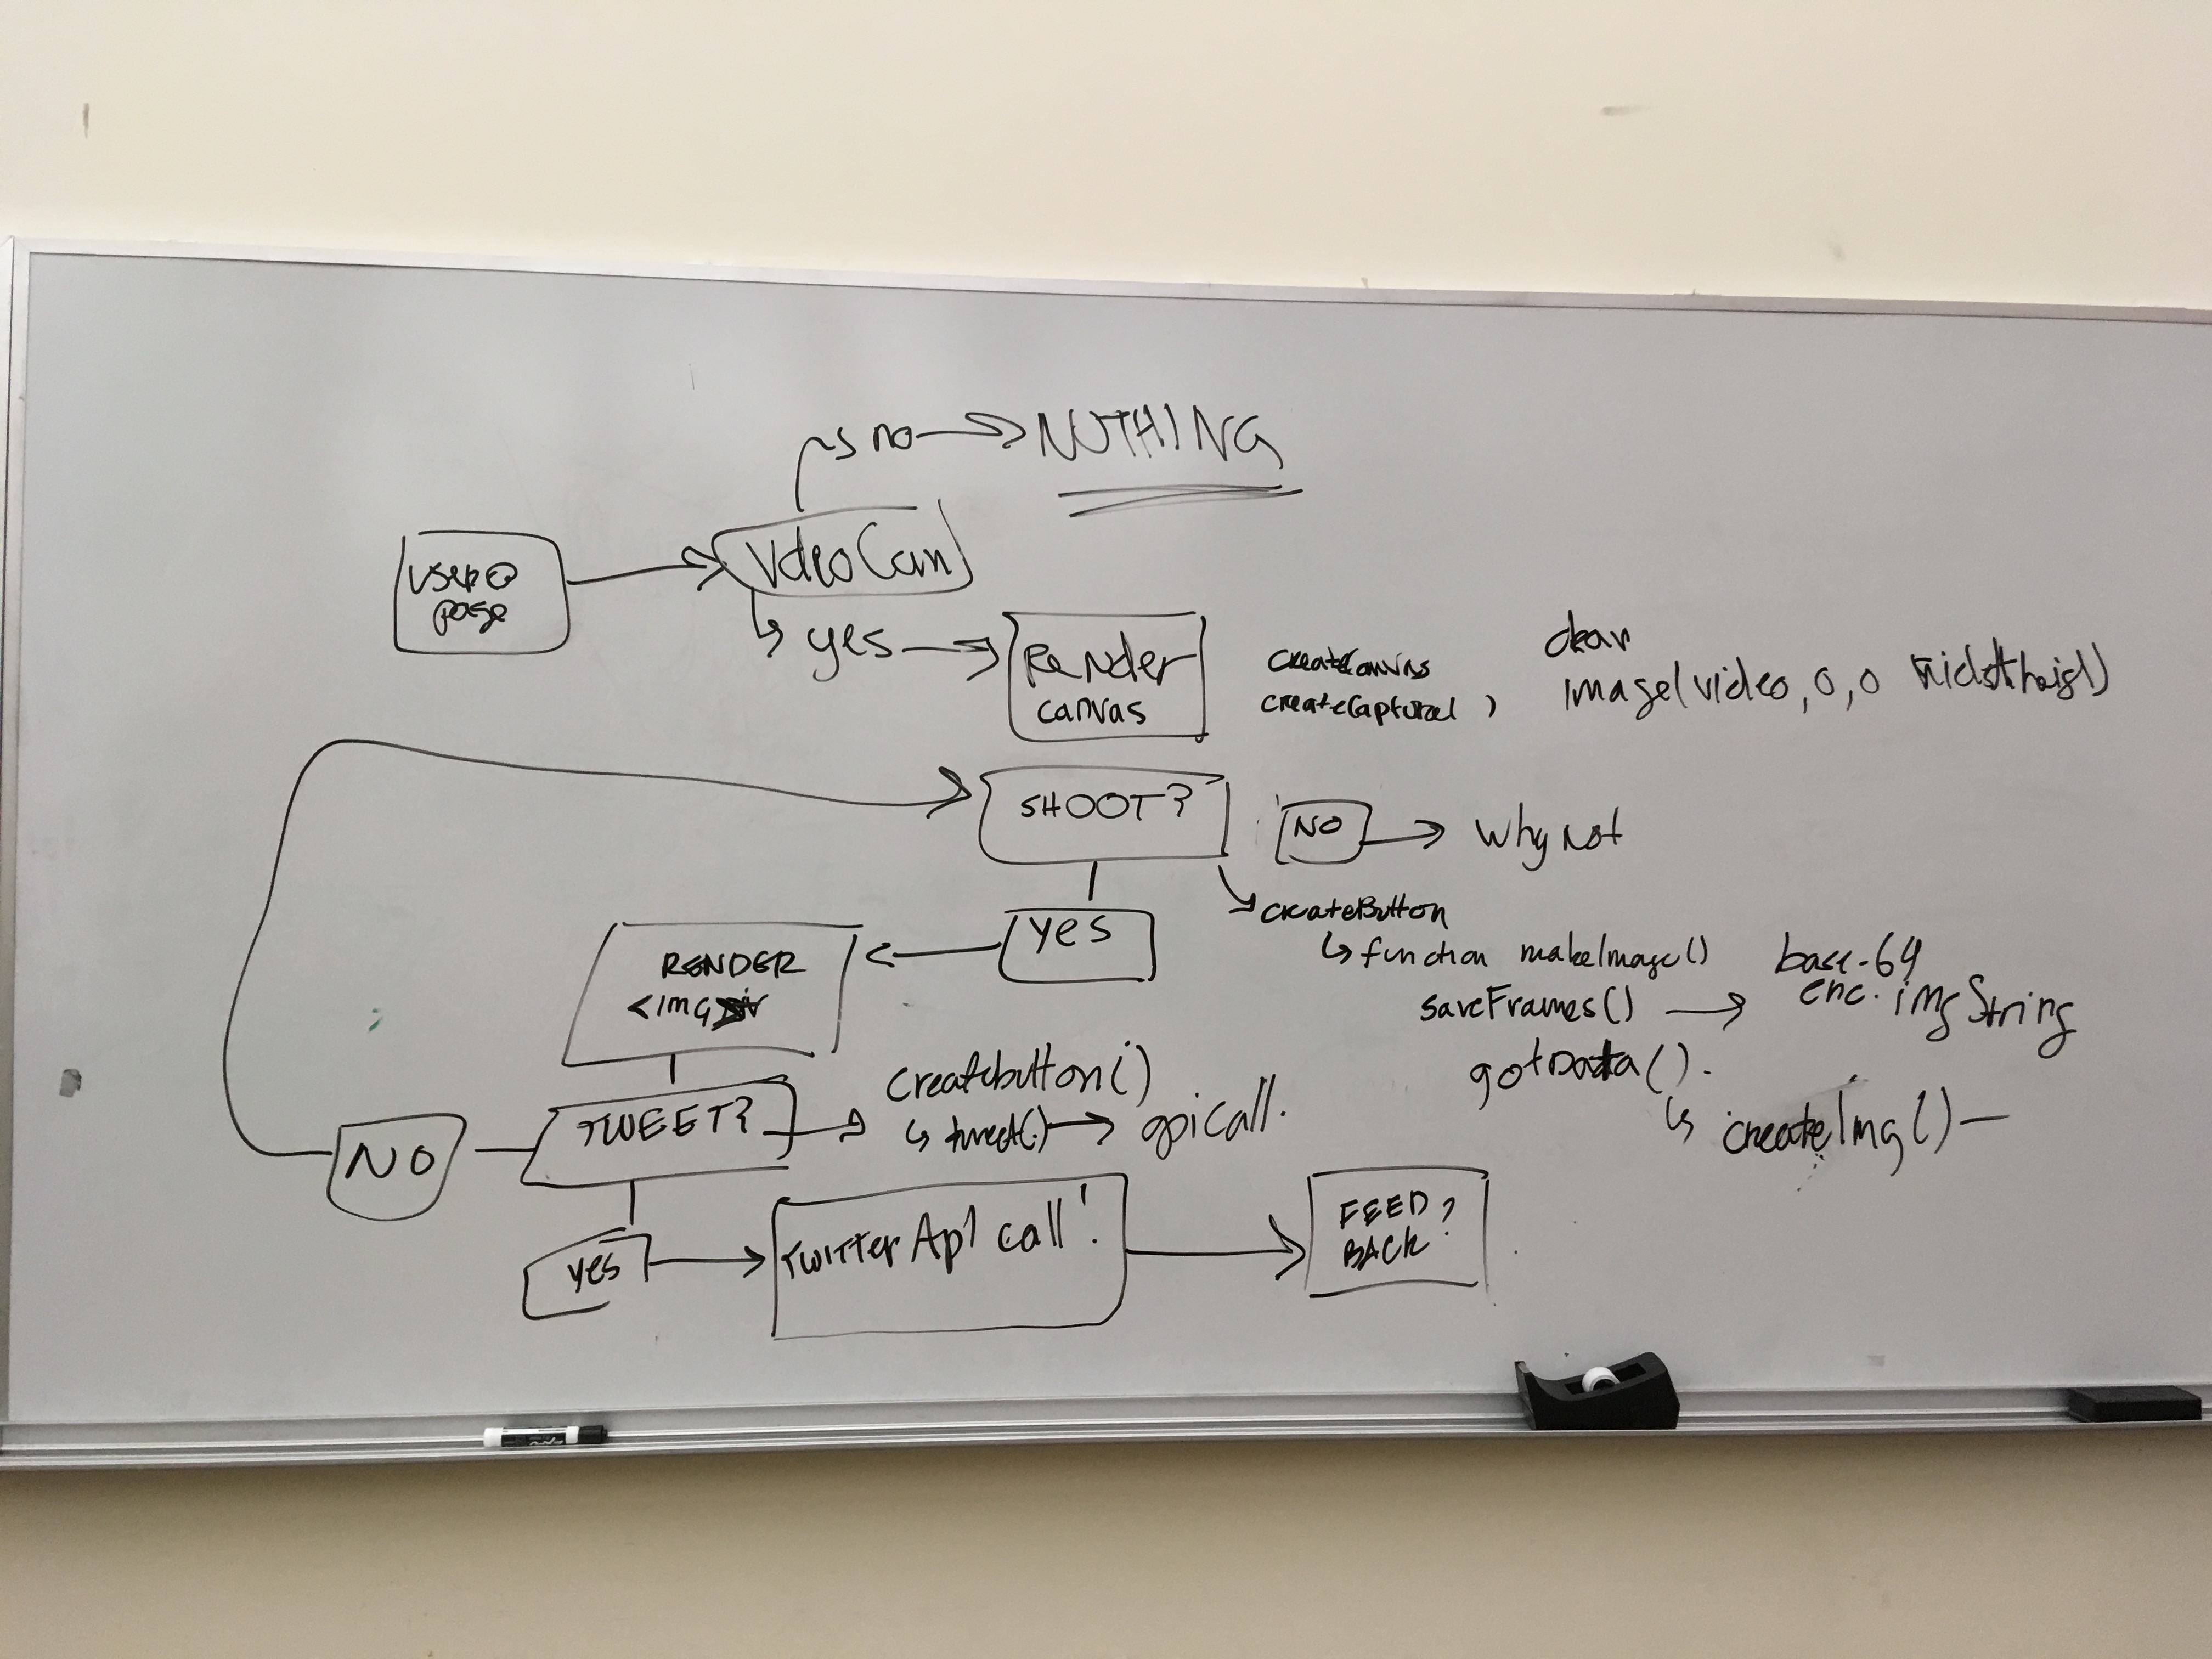 no → NOTHING
USER @
page
VdeoCam
yes →
Render
canvas
createCanvas
createCapture( )
clear
image(video, 0, 0 width height)
SHOOT?
NO → Why Not
yes
createButton
↳ function makeImage()
saveFrames() →
base-64
enc. imgString
gotData().
↳ createImg() —
RENDER
<img
TWEET?
createbutton()
↳ tweet() → apicall.
NO
yes →
TWITTER Api call!
FEED
BACK?